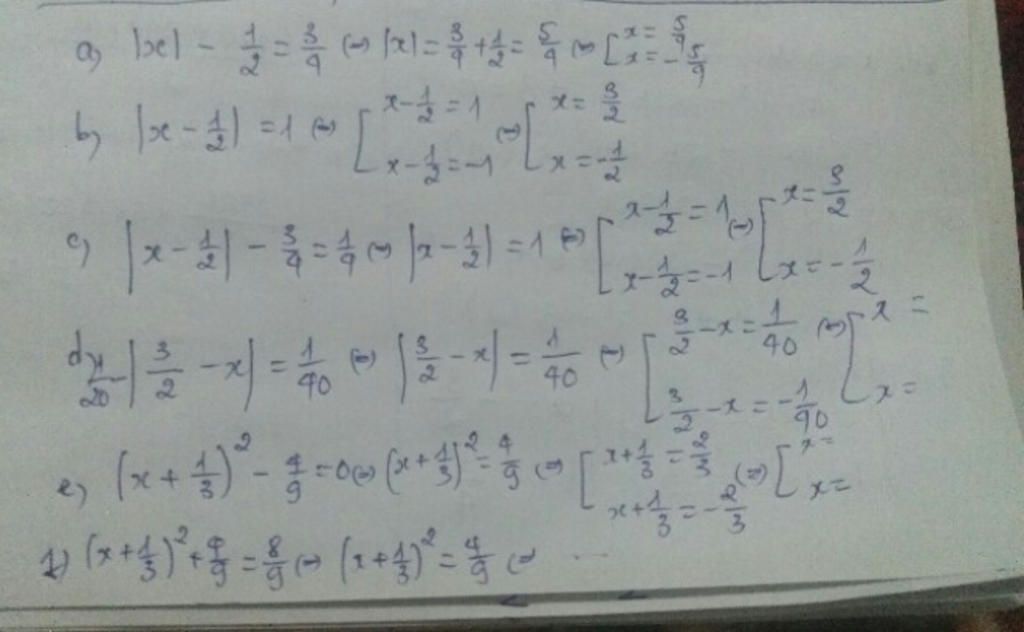 a, |x| - 1/2 = 3/4 (=) |x| = 3/4 + 1/2 = 5/4 (=) [ x = 5/4 x = -5/4
b, |x - 1/2| = 1 (=) [ x - 1/2 = 1 x - 1/2 = -1 (=) [ x = 3/2 x = -1/2
c, |x - 1/2| - 3/4 = 1/4 (=) |x - 1/2| = 1 (=) [ x - 1/2 = 1 x - 1/2 = -1 (=) [ x = 3/2 x = -1/2
d, 1/20 - |3/2 - x| = 1/40 (=) |3/2 - x| = 1/40 (=) [ 3/2 - x = 1/40 3/2 - x = -1/40 (=) [ x = x =
e, (x + 1/3)² - 4/9 = 0 (=) (x + 1/3)² = 4/9 (=) [ x + 1/3 = 2/3 x + 1/3 = -2/3 (=) [ x = x =
1) (x + 1/3)² + 4/9 = 8/9 (=) (x + 1/3)² = 4/9 (=) ...